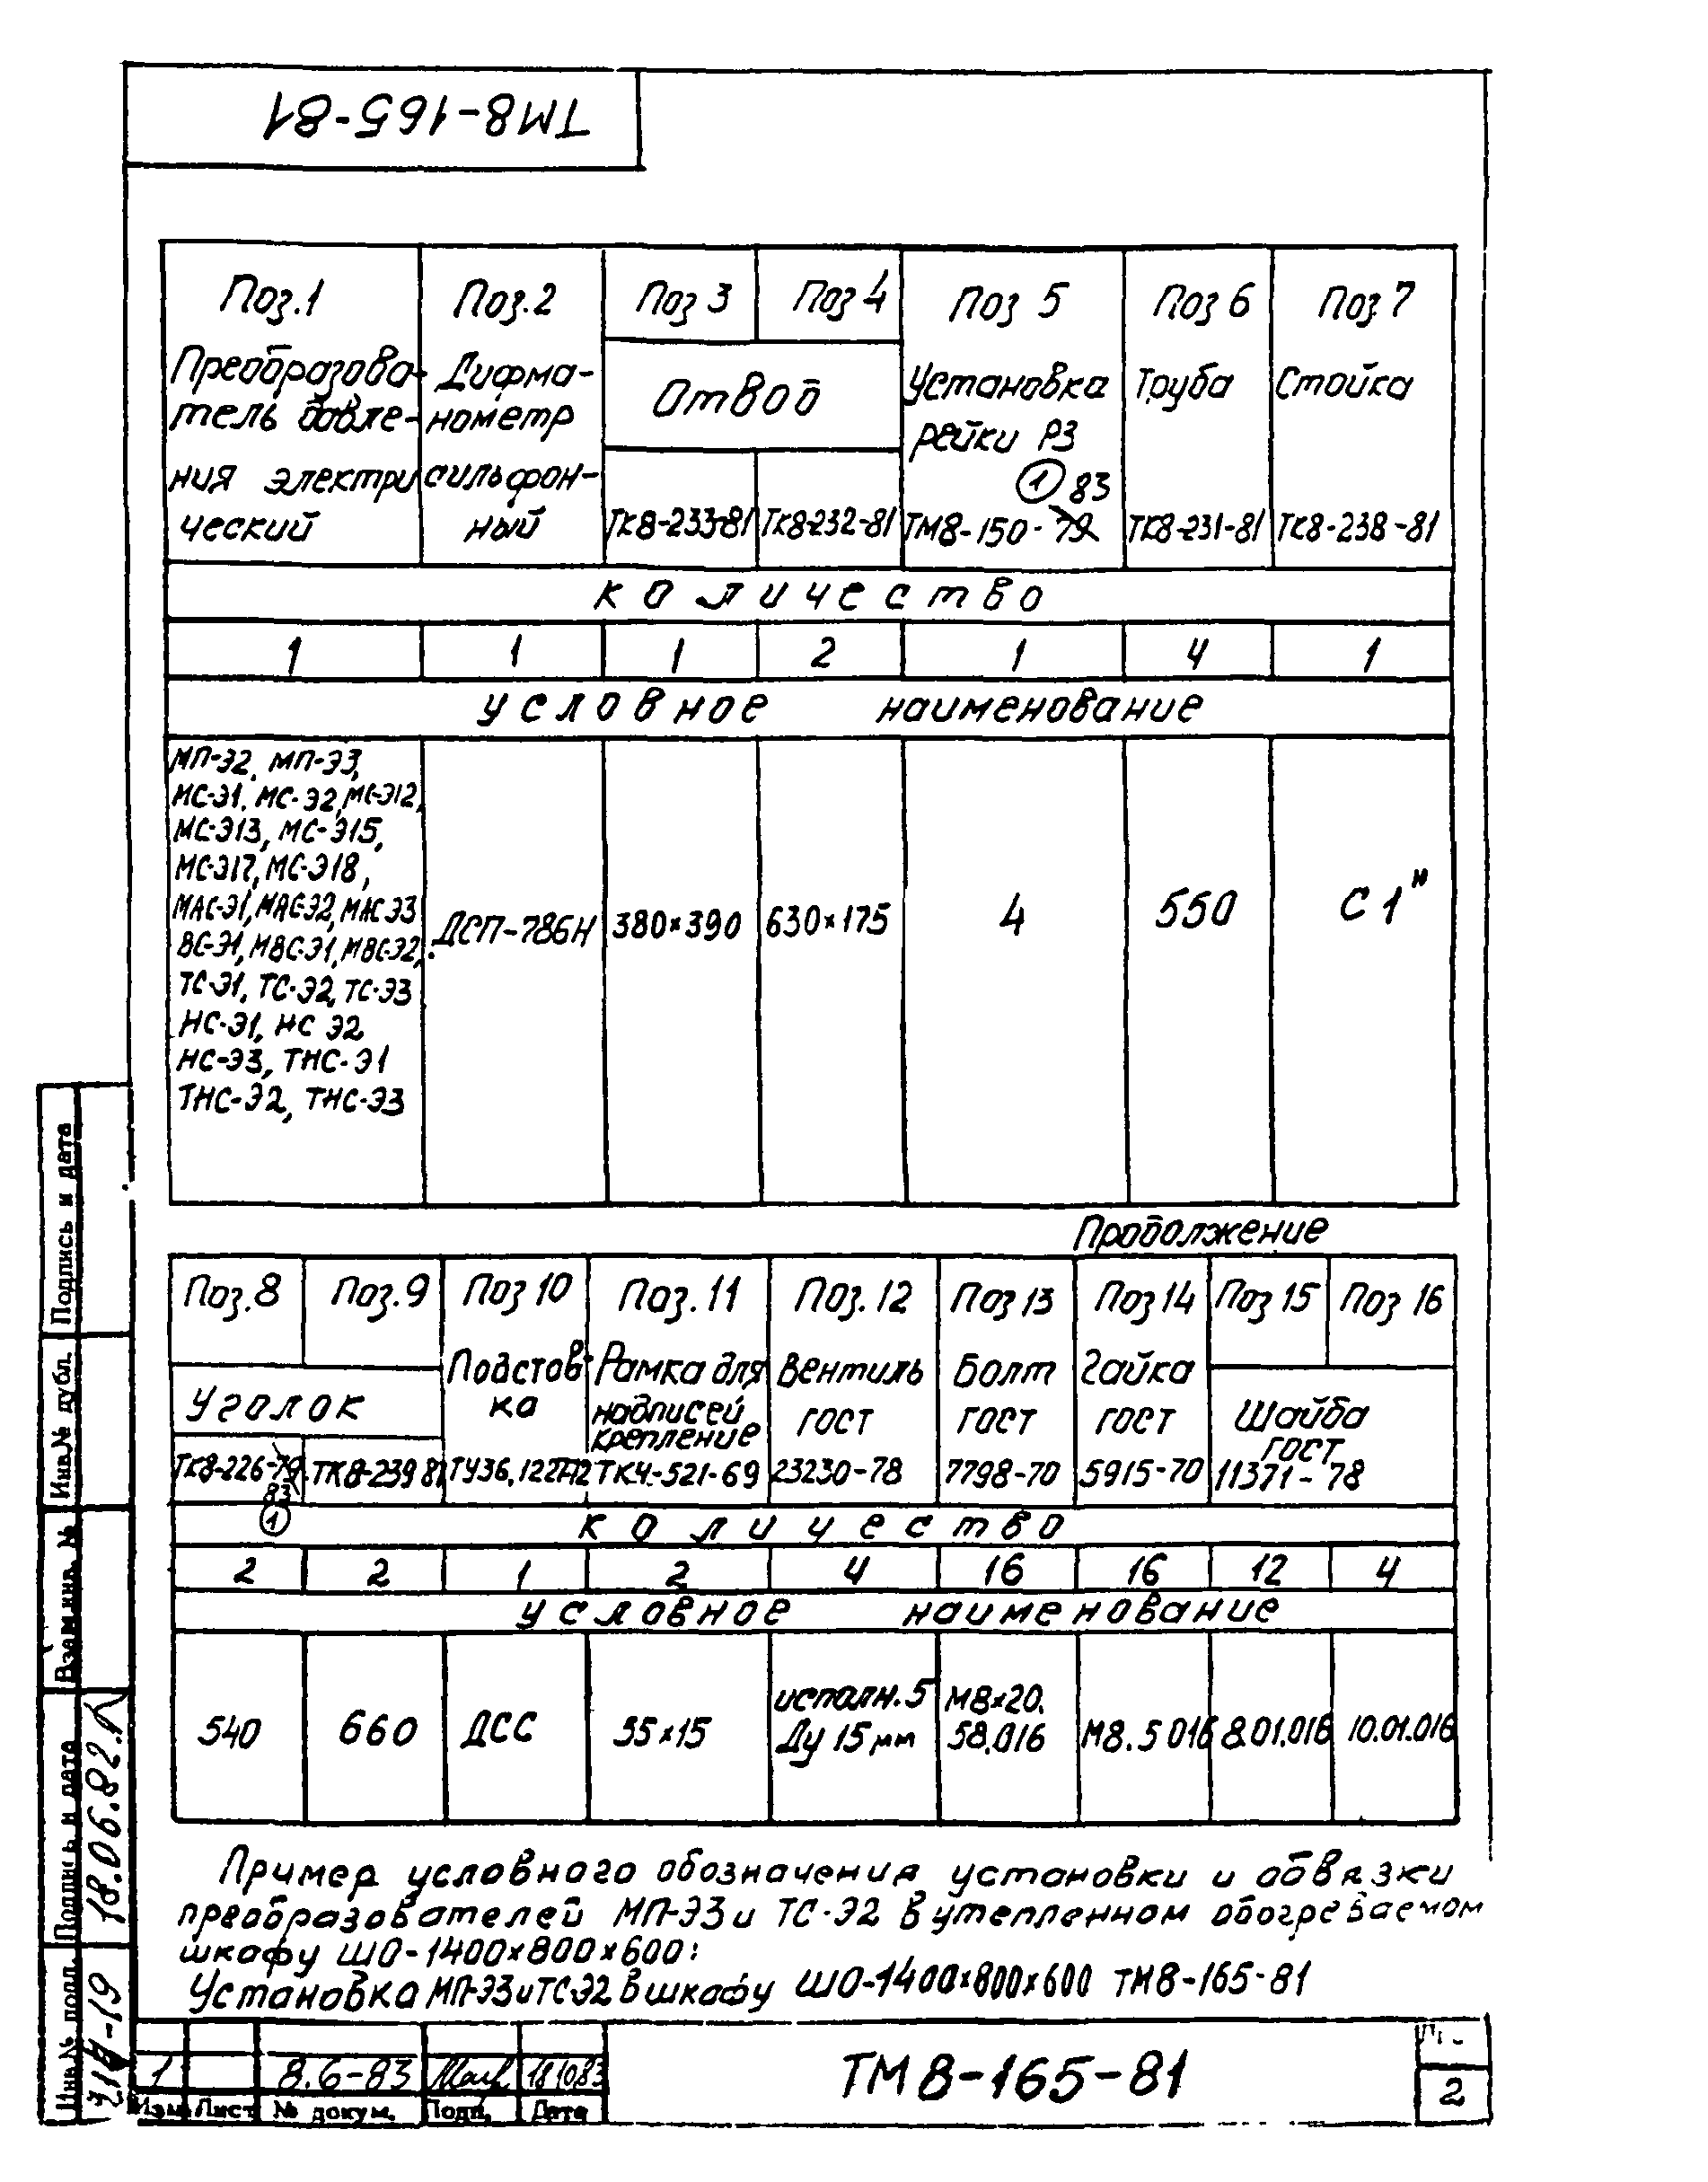 ТМ8-165-81
Поз.1 Поз.2 Поз 3 Поз 4 Поз 5 Поз 6 Поз. 7
Преобразова- Дифма- Отвод Установка Труба Стойка
тель давле- нометр рейки РЗ
ния электри сильфон- 1 83
ческий ный ТК8-233-81 ТК8-232-81 ТМ8-150-79 ТК8-231-81 ТК8-238-81
количество
1 1 1 2 1 4 1
условное наименование
МП-Э2, МП-Э3,
МС-Э1, МС-Э2, МС-Э12,
МС-Э13, МС-Э15,
МС-Э17, МС-Э18,
МАС-Э1, МАС-Э2, МАС Э3
ВС-Э1, МВС-Э1, МВС-Э2,
ТС-Э1, ТС-Э2, ТС-Э3
НС-Э1, НС Э2
НС-Э3, ТНС-Э1
ТНС-Э2, ТНС-Э3
ДСП-786Н 380×390 630×175 4 550 С1"
Продолжение
Поз.8 Поз.9 Поз 10 Поз.11 Поз.12 Поз 13 Поз 14 Поз 15 Поз 16
Уголок Подстав- Рамка для Вентиль Болт Гайка Шайба
ка надписей ГОСТ ГОСТ ГОСТ ГОСТ
крепление
ТК8-226-79 ТК8-239 81 ТУ36.1227-72 ТК4-521-69 23230-78 7798-70 5915-70 11371-78
83
1
количество
2 2 1 2 4 16 16 12 4
условное наименование
540 660 ДСС 55×15 исполн.5 М8×20. М8.5 016 8.01.016 10.01.016
Ду 15 мм 58.016
Пример условного обозначения установки и обвязки
преобразователей МП-Э3 и ТС-Э2 в утепленном обогреваемом
шкафу ШО-1400×800×600:
Установка МП-Э3 и ТС-Э2 в шкафу ШО-1400×800×600 ТМ8-165-81
1 8.6-83 18.10.83
Изм. Лист № докум. Подп. Дата
ТМ8-165-81
2
Подпись и дата
Инв.№ дубл.
Взам.инв. №
Подпись и дата 18.06.82
Инв.№ подл.